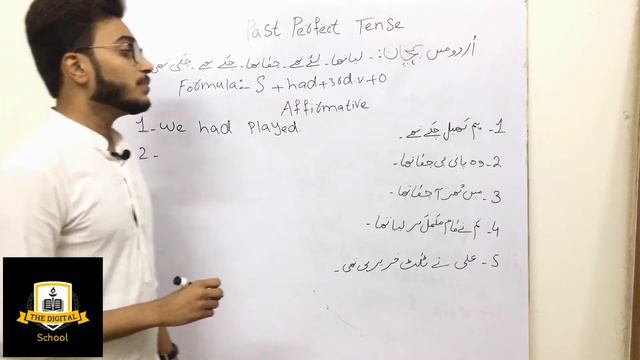 Past Perfect Tense
اُردو میں پہچان:۔ لیا تھا۔ لئے تھے۔ چُکا تھا۔ چُکے تھے۔ چُکی تھی
Formula:- S + had + 3rd.v + O
Affirmative
1- We had Played.
2-
1- ہم کھیل چُکے تھے۔
2- وہ پانی پی چُکا تھا۔
3- میں گھر آ چُکا تھا۔
4- تم نے کام مکمل کر لیا تھا۔
5- علی نے ٹکٹ خرید لی تھی۔
THE DIGITAL
School